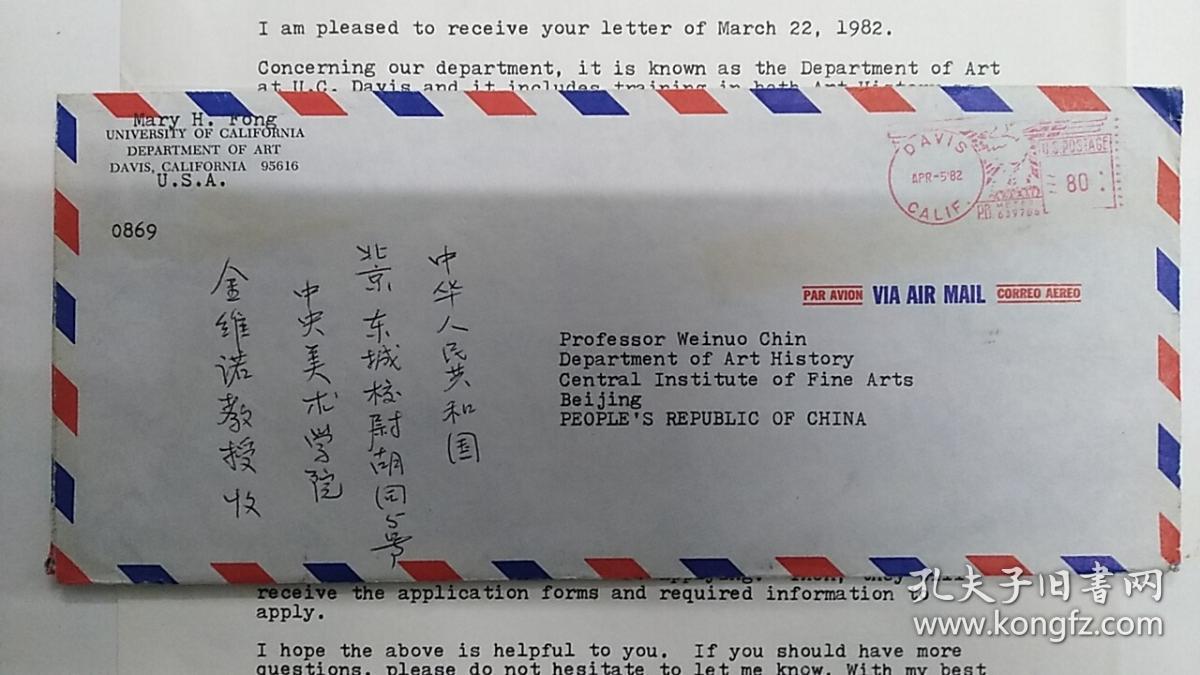 I am pleased to receive your letter of March 22, 1982.
Concerning our department, it is known as the Department of Art
at U.C. Davis and it includes training in both Art History
Mary H. Fong
UNIVERSITY OF CALIFORNIA
DEPARTMENT OF ART
DAVIS, CALIFORNIA 95616
U.S.A.
0869
DAVIS
APR-5'82
CALIF.
U.S. POSTAGE
80
P.B. METER
PAR AVION VIA AIR MAIL CORREO AEREO
中华人民共和国
北京东城校尉胡同5号
中央美术学院
金维诺教授收
Professor Weinuo Chin
Department of Art History
Central Institute of Fine Arts
Beijing
PEOPLE'S REPUBLIC OF CHINA
applying. Then, they will
receive the application forms and required information
apply.
I hope the above is helpful to you. If you should have more
questions, please do not hesitate to let me know. With my best
孔夫子旧书网
www.kongfz.com